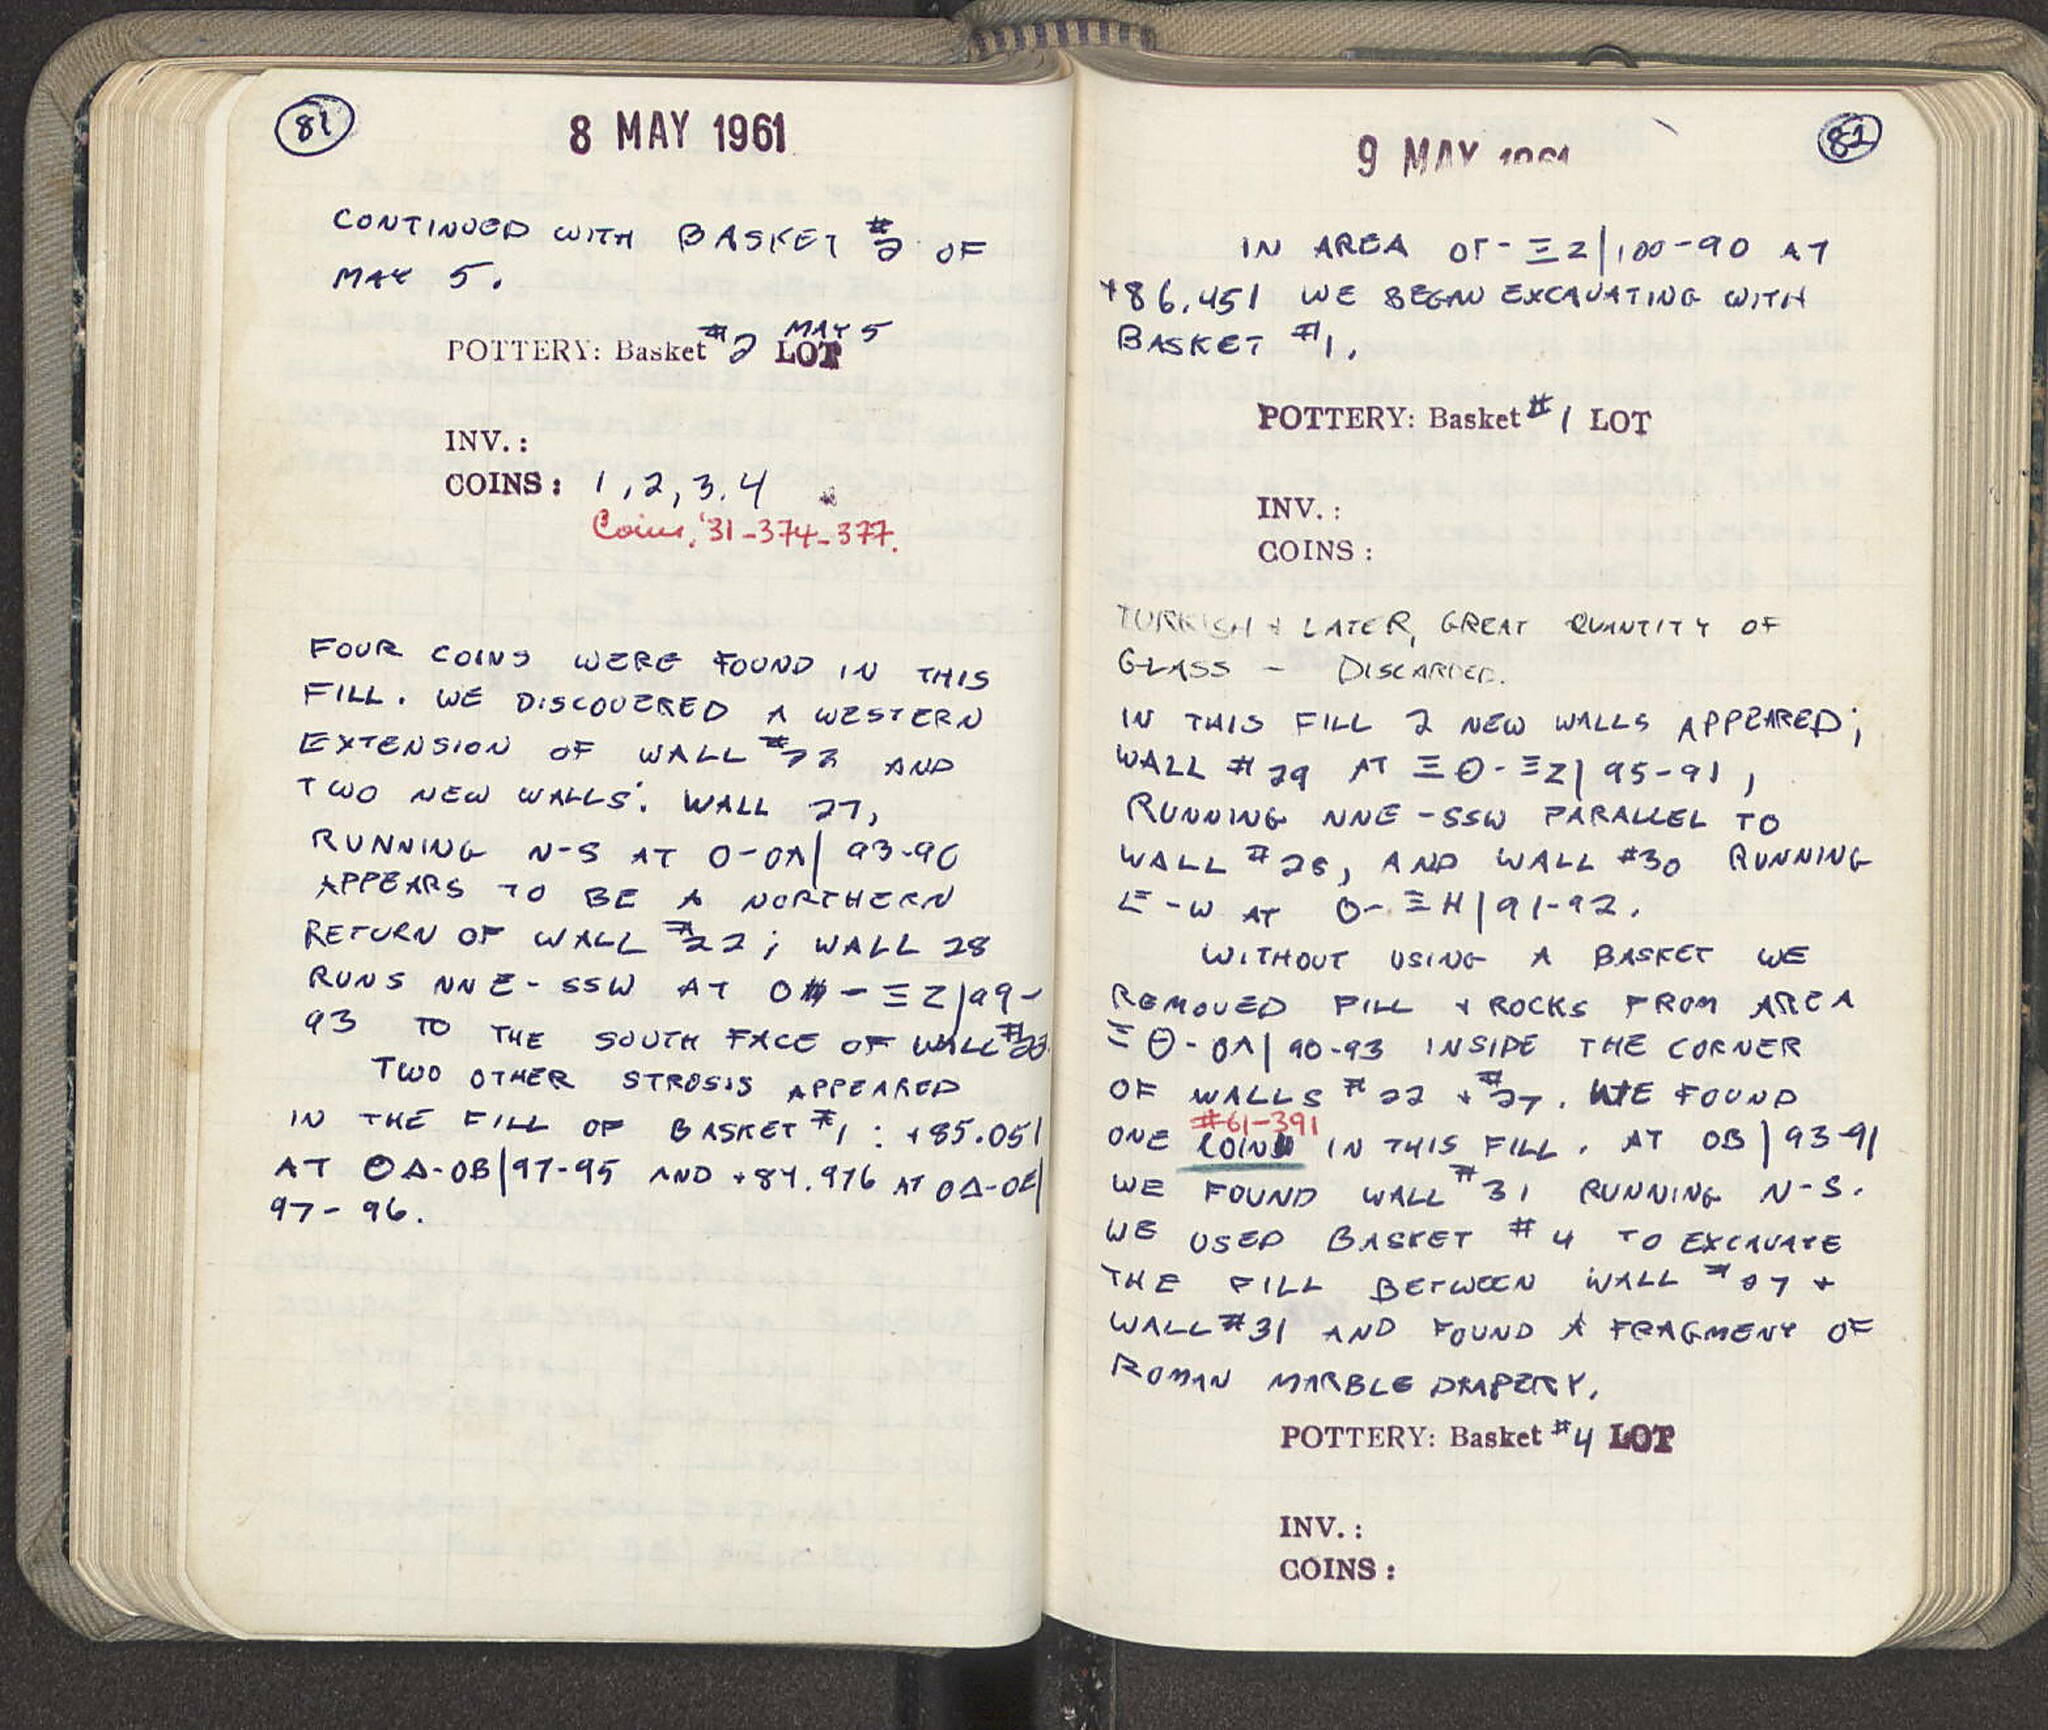 81
8 MAY 1961
CONTINUED WITH BASKET #2 OF
MAY 5.
MAY 5
POTTERY: Basket #2 LOT
INV.:
COINS: 1, 2, 3, 4
Coins, '31-374-377.
FOUR COINS WERE FOUND IN THIS
FILL. WE DISCOVERED A WESTERN
EXTENSION OF WALL #22 AND
TWO NEW WALLS: WALL 27,
RUNNING N-S AT O-OΛ| 93-90
APPEARS TO BE A NORTHERN
RETURN OF WALL #22; WALL 28
RUNS NNE-SSW AT - ΞZ|99-
93 TO THE SOUTH FACE OF WALL
TWO OTHER STROSIS APPEARED
IN THE FILL OF BASKET #1: +85.051
AT OΔ-OB|97-95 AND +84.976 AT OΔ-OE|
97-96.
82
9 MAY 1961
IN AREA OΓ-ΞZ|100-90 AT
+86.451 WE BEGAN EXCAVATING WITH
BASKET #1.
POTTERY: Basket #1 LOT
INV.:
COINS:
TURKISH + LATER, GREAT QUANTITY OF
GLASS - DISCARDED.
IN THIS FILL 2 NEW WALLS APPEARED;
WALL #29 AT ΞΘ-ΞZ| 95-91,
RUNNING NNE-SSW PARALLEL TO
WALL #28, AND WALL #30 RUNNING
E-W AT O-ΞH|91-92.
WITHOUT USING A BASKET WE
REMOVED FILL + ROCKS FROM AREA
ΞΘ-OΛ|90-93 INSIDE THE CORNER
OF WALLS #22 + #27. WE FOUND
#61-391
ONE COIN IN THIS FILL. AT OB|93-91
WE FOUND WALL #31 RUNNING N-S.
WE USED BASKET #4 TO EXCAVATE
THE FILL BETWEEN WALL #27 +
WALL #31 AND FOUND A FRAGMENT OF
ROMAN MARBLE DRAPERY.
POTTERY: Basket #4 LOT
INV.:
COINS: